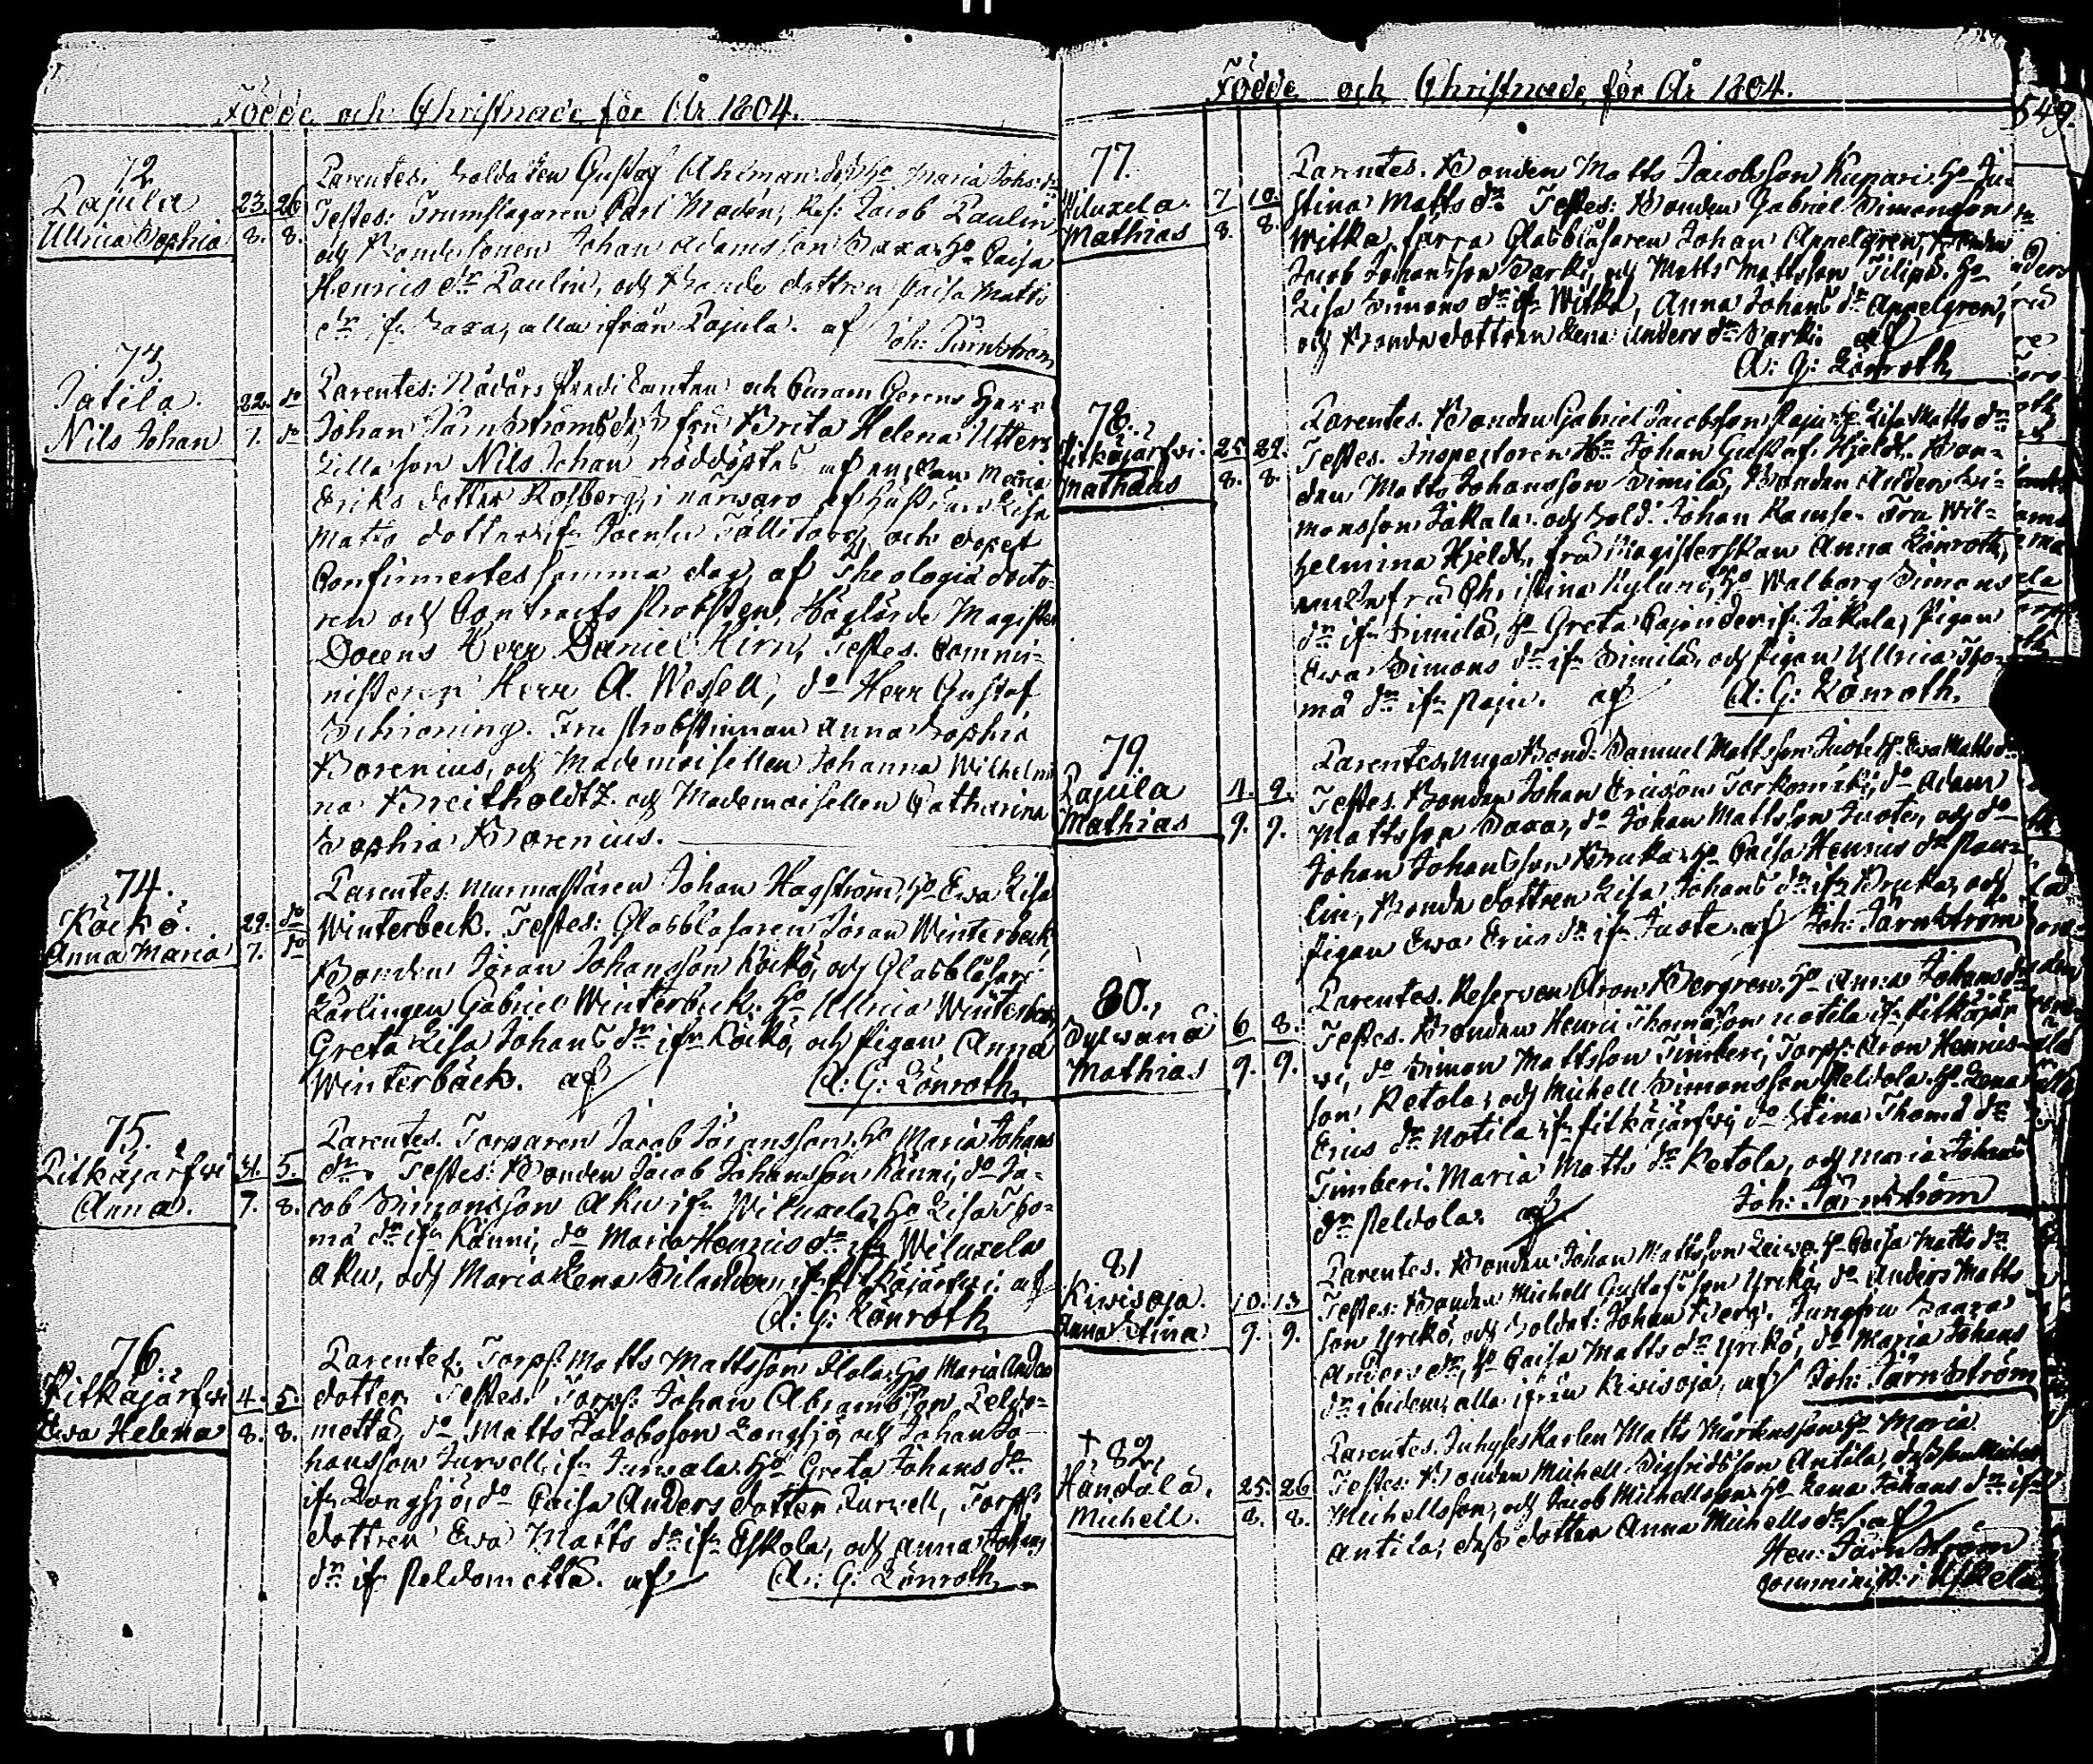 Födde och Christnade för År 1804.
72
Pajula 23. 26
Ullrica Sophia 8. 8.
Parentes: Soldaten Gustaf Ahlman Hu Maria Johs dr
Testes: Trumslagaren Carl Modén, Res: Jacob Paulin,
och Bondesonen Johan Adamsson Saxa, Ha Caisa
Henrics dr Paulin, och Bonde dottren Caisa Matts
dr ifr Saxa, alla ifrån Pajula. af
Joh: Järnström
73
Jatila. 22. do
Nils Johan 7. do
Parentes: Nådårs Predikanten och Curam Gerens Herr
Johan Järnströms Fru Brita Helena Utters
Lilla son Nils Johan nöddöptes af enkan Maria
Eriks dotter Rosberg, i närwaro af Hustrun Lisa
Matts dotter ifr och dopet
Confirmertes samma dag af Theologiæ docto-
ren och Contracts Probsten, Höglärde Magister
Docens Herr Daniel Hirn, Testes. Commi-
nistern Herr A. Wesell, do Herr Gustaf
Schroning. Fru Probstinnan Anna Sophia
Borenius, och Mademoisellen Johanna Wilhelmi
na Breitholdtz och Mademoisellen Catharina
Sophia Borenius.
74.
Kåckå. 29. do
Anna Maria 7. do
Parentes: murmästaren Johan Hagström, Ho Ewa Lisa
Winterbeck. Testes: Glasblåsaren Jöran Winterbeck,
Bonden Jöran Johansson Kåckå, och Glasblåsare
Lärlingen Gabriel Winterbeck. Ho Ullrica Winterbeck,
Greta Lisa Johans dr ifr Kåckå, och Pigan Anna
Winterbäck. af A: G: Lönroth.
75.
Pitkäjärfwi 31. 5.
Anna. 7. 8.
Parentes. Torparen Jacob Joransson, Ho Maria Johans
dr. Testes: Bonden Jacob Johansson Känni, do Ja-
cob Simonsson Aku ifr Wiluxela, Ho Lisa Tho-
mæ dr ifr Känni, do Maria Henrics dr ifr Wiluxela
Aku, och Maria Lena Silander, ifr Pitkäjärfwi. af
A: G: Lönroth
76.
Pitkäjärfwi 4. 5.
Ewa Helena 8. 8.
Parentes. Torp: Matts Mattsson Ilola, Ho Maria Anders
dotter. Testes. Torp: Johan Abramsson Peldo-
metta, do Matts Jacobsson Långsjö, och Johan Jo-
hansson Turwell, ifr Turwola. Ho Greta Johans dr
ifr Långsjö, do Caisa Anders dotter Turwell, Torp:
dottren Ewa Matts dr ifr Eskola, och Anna Johans
dr ifr Peldometta. af A: G: Lönroth
Födde och Christnade för År 1804.
549.
77.
Wiluxela. 7. 10.
Mathias 8. 8.
Parentes. Bonden Matts Jacobsson Kupari. Ho Ju-
stina Matts dr. Testes: Bonden Gabriel Simonsson
Witka, förra Glasblåsaren Johan Appelgren, Bonden
Jacob Johansson Sarki, och Matts Mattsson Filipä. Ho
Lisa Simons dr ifr Witka, Anna Johans dr Appelgren,
och Bonde dottren Lena Anders dr Sarki. af
A: G: Lönroth
78.
Pitkäjärfwi. 25. 29.
Mathias 8. 8.
Parentes. Bonden Gabriel Jacobsson Paju, Ho Lisa Matts dr
Testes. Inspectoren Hr Johan Gustaf Hjeldt. Bon-
den Matts Johansson Simila, Bonden Anders Si-
monsson Jakala, och Sold: Johan Kamse. Fru Wil-
helmina Hjeldt, fru Magisterskan Anna Lönroth,
fru Christina Nylund, Ho Walborg Simons
dr ifr Simila, Ho Greta Cajander ifr Jakala, Pigan
Ewa Simons dr ifr Simila, och Pigan Ullrica Tho-
mæ dr ifr Paju. af A: G: Lönroth.
79.
Pajula 4. 9.
Mathias 9. 9.
Parentes. Unga Bond: Samuel Mattsson Juote, Ho Ewa Matts dr
Testes. Bonden Johan Ericsson Torkomäki, do Adam
Mattsson Saxa, do Johan Mattsson Juote, och do
Johan Johansson Bruka, Ho Caisa Henrics dr Pau-
lin, Bonde dottren Lisa Johans dr ifr Bruka, och
Pigan Ewa Erics dr ifr Juote. af Joh: Järnström
80.
Syrwanå 6 8.
Mathias 9. 9.
Parentes. Reserven Aron Bergren. Ho Anna Johans dr
Testes. Bonden Henric Thomasson Notila ifr Pitkäjär
wi, do Simon Mattsson Timberi, Torp: Aron Henrics-
son Ketola, och Michell Simonsson Peldola. Ho Lena
Erics dr Notila ifr Pitkäjärfwi, do Stina Thomæ dr
Timberi. Maria Matts dr Ketola, och Maria Johans
dr Peldola. af Joh: Järnström
81
Kiwisoja. 10. 13
Anna Stina 9. 9.
Parentes. Bonden Johan Mattsson Leiwo. Ho Caisa Matts dr
Testes: Bonden Michell Gustafsson Yrikö, do Anders Matts
son Yrikö, och Soldat: Johan Berg. Jungfru Saara
Anders dr, Ho Caisa Matts dr Yrikö, do Maria Johans
dr ibidem, alla ifrån Kiwisoja, af Joh: Järnström
† 82.
Handala. 25. 26
Michell. 8. 8.
Parentes. Inhyseskarlen Matts Mårtensson, Ho Maria
Testes: Bonden Michell Sigfridsson Antila, dess son Michell
Michellsson, och Jacob Michellsson, Ho Lena Johans dr ifr
Antila, dess dotter Anna Michells dr. af
Hen: Järnström
Comminist: i Uskela